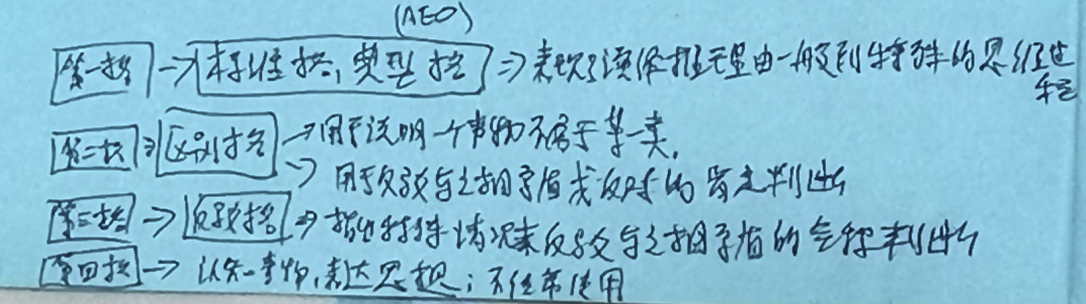 (AEO)
第一格 → 标准格,典型格 ⇒ 表现了演绎推理由一般到特殊的思维过程
第二格 ⇒ 区别格 → 用于说明一个事物不属于某一类.
→ 用于反驳与之相矛盾或反对的肯定判断
第三格 → 反驳格 ⇒ 指出特殊情况来反驳与之相矛盾的全称判断
第四格 → 认知事物,表达思想;不经常使用